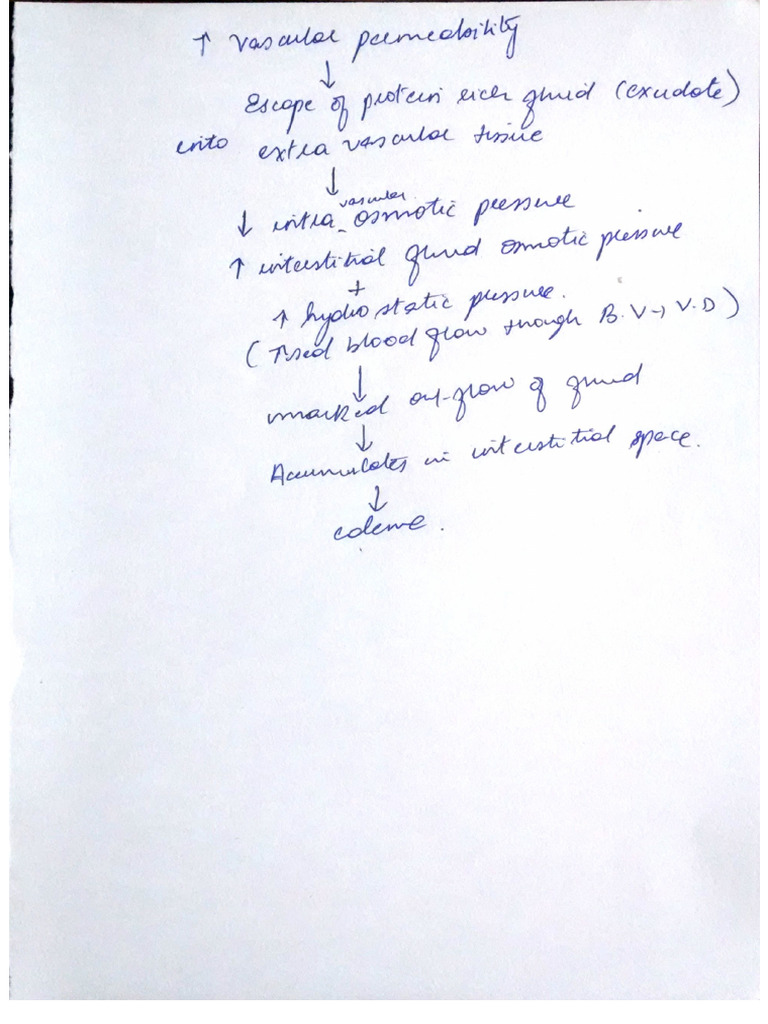 ↑ vascular permeability
↓
Escape of protein rich fluid (exudate)
into extra vascular tissue
↓
↓ intra vascular osmotic pressure
↑ interstitial fluid osmotic pressure
+
↑ hydrostatic pressure.
(↑sed blood flow though B.V → V.D)
↓
marked out-flow of fluid
↓
Accumulates in interstitial space.
↓
edema.